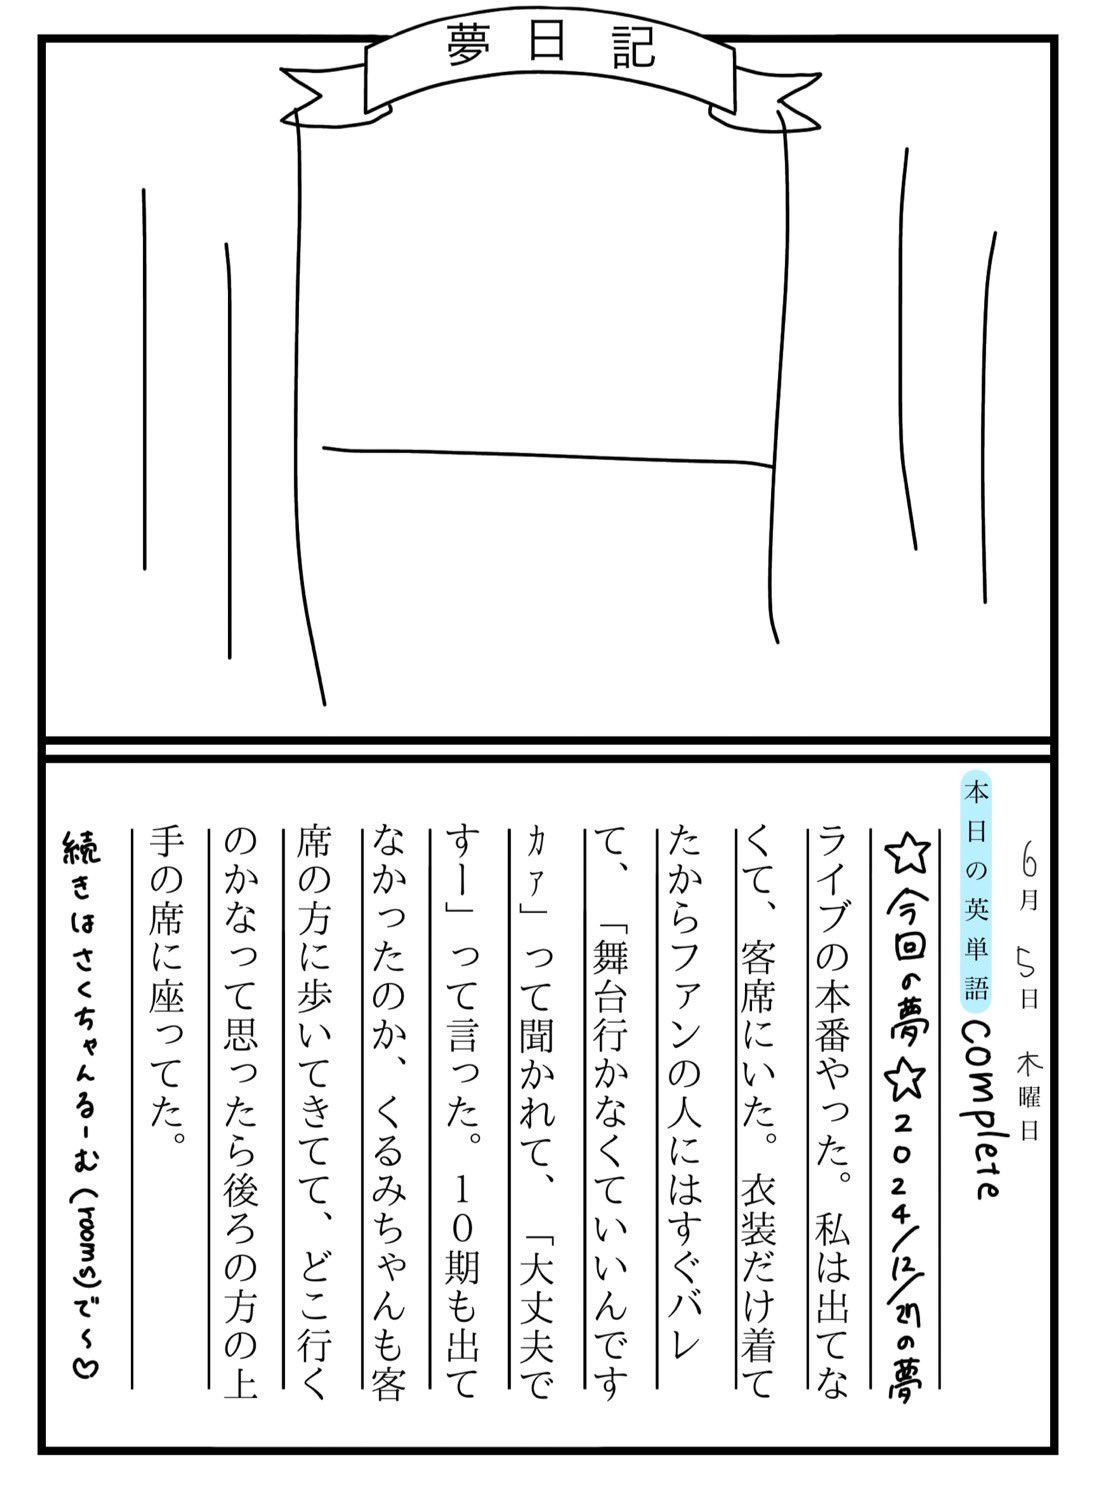 夢日記
6月5日 木曜日
本日の英単語 complete
☆今回の夢☆2024/12/27の夢
ライブの本番やった。私は出てな
くて、客席にいた。衣装だけ着て
たからファンの人にはすぐバレ
て、「舞台行かなくていいんです
ｶｧ」って聞かれて、「大丈夫で
すー」って言った。10期も出て
なかったのか、くるみちゃんも客
席の方に歩いてきてて、どこ行く
のかなって思ったら後ろの方の上
手の席に座ってた。
続きはさくちゃんるーむ(rooms)で〜♡